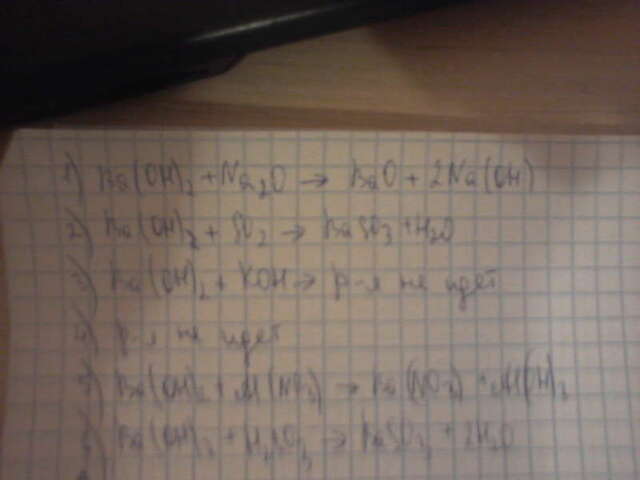 1) Ba(OH)2 + Na2O → BaO + 2Na(OH)
2) Ba(OH)2 + SO2 → BaSO3 + H2O
3) Ba(OH)2 + KOH → р-я не идет
4) р-я не идет
5) Ba(OH)2 + Al(NO3) → Ba(NO3) + Al(OH)3
6) Ba(OH)2 + H2SO3 → BaSO3 + 2H2O